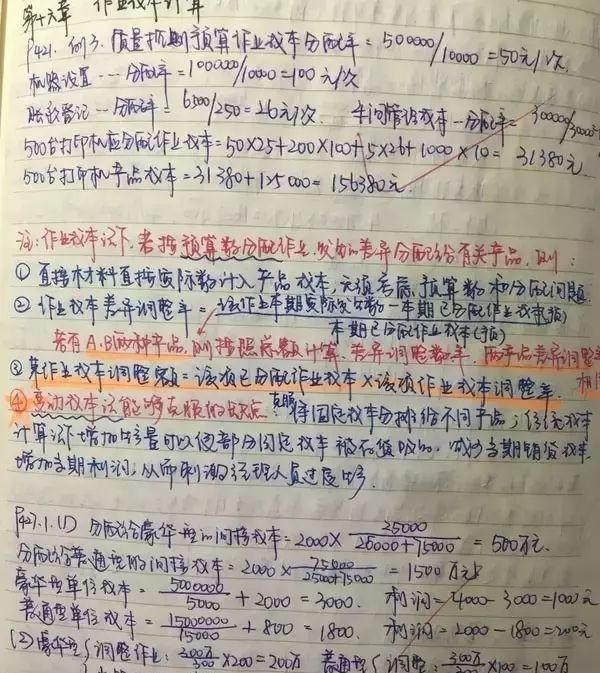 第十六章 作业成本计算
P421. 例3. 质量抽测预算作业成本分配率 = 500000/10000 = 50元/次.
机器设置 … 分配率 = 1000000/10000 = 100元/次
账款登记 … 分配率 = 6500/250 = 26元/次. 车间管理成本 … 分配率 = 300000/30000
500台打印机应分配作业成本 = 50×25+200×100+5×26+1000×10 = 31380元
500台打印机产品成本 = 31380+125000 = 156380元.
注: 作业成本法下, 若按预算数分配作业, 发生差异分配给有关产品, 则:
① 直接材料直接按实际数计入产品成本, 无须考虑预算数和分配问题.
② 作业成本差异调整率 = 该作业本期实际发生数 - 本期已分配作业成本(预) / 本期已分配作业成本(预)
若有A.B两种产品, 则按照总额计算差异调整率, 两产品差异调整率相同
③ 某作业成本调整额 = 该项已分配作业成本 × 该项作业成本调整率.
④ 变动成本法能够克服的缺点: 将固定成本分摊给不同产品; 传统成本
计算法下增加产量可以使部分固定成本被存货吸收, 减少当期销货成本,
增加当期利润, 从而刺激经理人员过度生产.
P427.1.(1) 分配给豪华型的间接成本 = 2000 × 25000 / 25000+75000 = 500万元.
分配给普通型的间接成本 = 2000 × 75000 / 25000+75000 = 1500万元
豪华型单位成本 = 5000000 / 5000 + 2000 = 3000. 利润 = 4000 - 3000 = 1000元
普通型单位成本 = 15000000 / 15000 + 800 = 1800. 利润 = 2000 - 1800 = 200元
(2) 豪华型 { 调整作业: 300万 / 300 × 200 = 200万 普通型 { 调整: 300万 / 300 × 100 = 100万